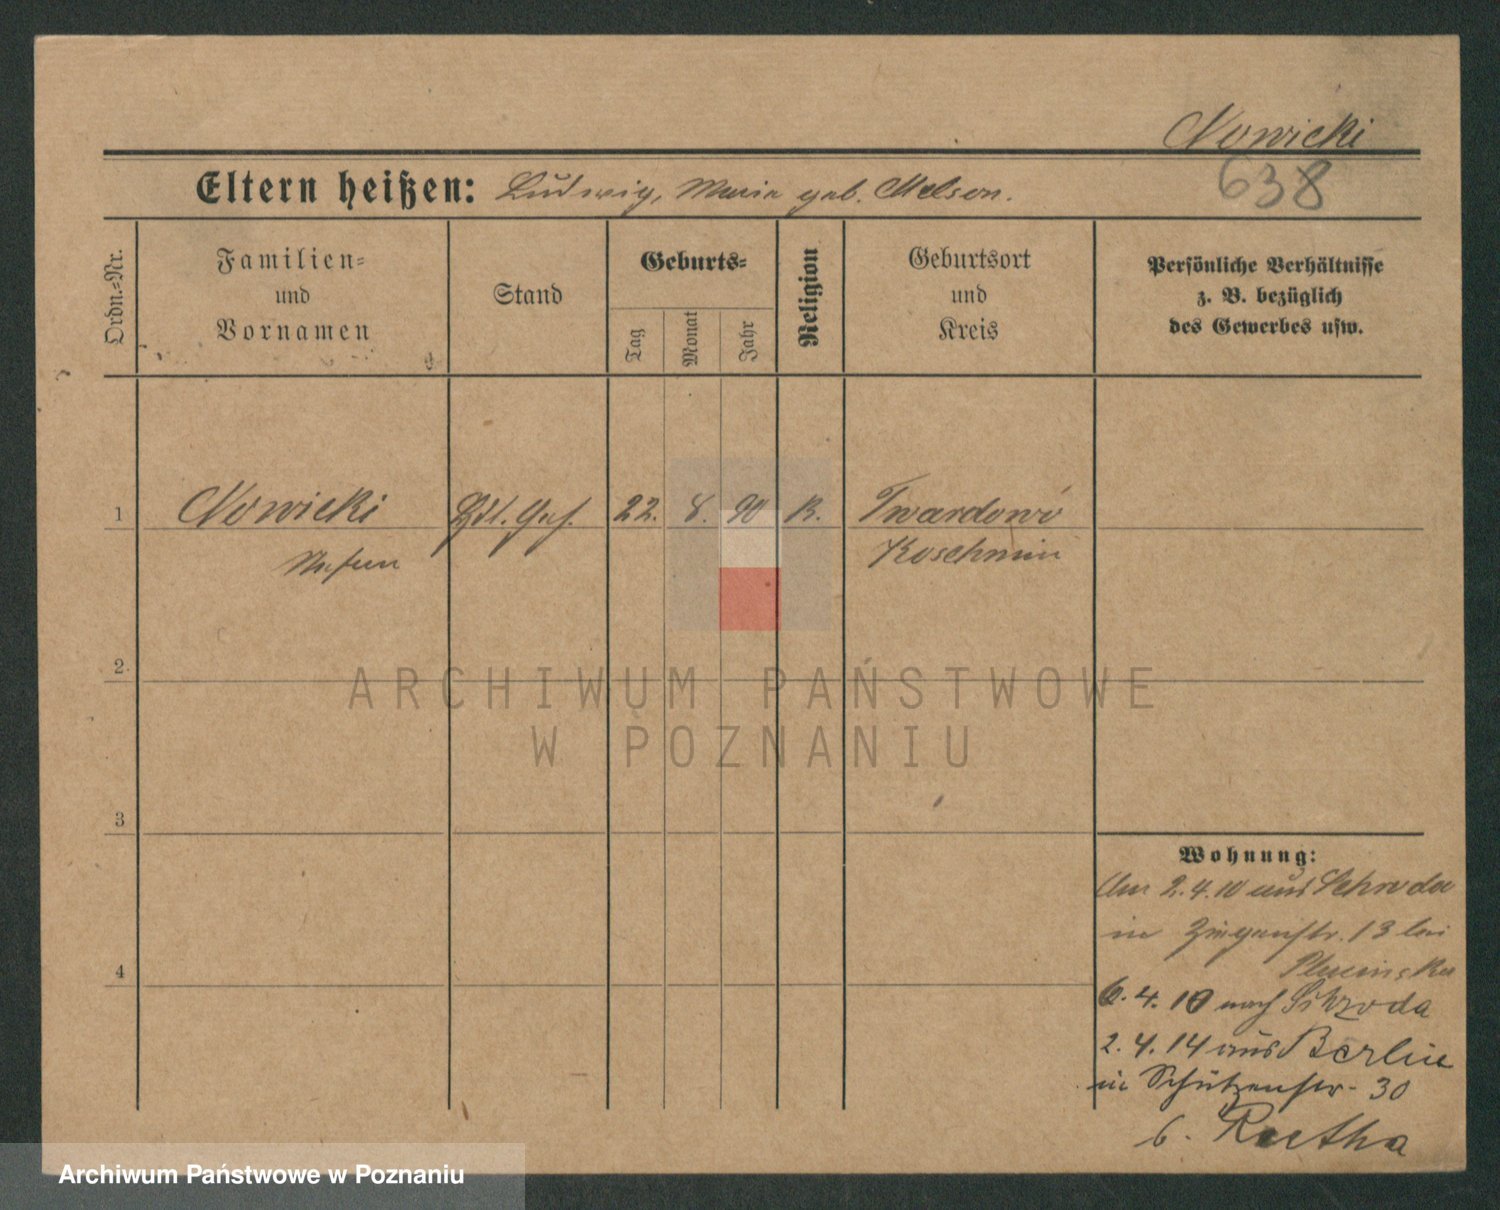 Nowicki
638
Eltern heißen: Ludwig, Maria geb. Melson.
Ordn.=Nr.
Familien=
und
Vornamen
Stand
Geburts=
Tag
Monat
Jahr
Religion
Geburtsort
und
Kreis
Persönliche Verhältnisse
z. B. bezüglich
des Gewerbes usw.
1 Nowicki Hdl. Geh. 22. 8. 90 K. Twardowo
Stefan Koschmin
2
3
4
Wohnung:
Am 2.4.10 aus Schroda
in Ziegenstr. 13 bei
Plucinska
6.4.10 nach Schroda
2.4.14 aus Berlin
in Schützenstr. 30
b.
ARCHIWUM PAŃSTWOWE
W POZNANIU
Archiwum Państwowe w Poznaniu